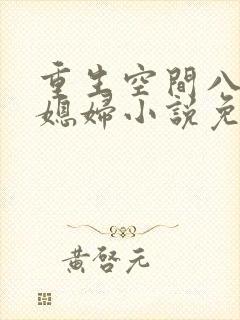 重生空間八
媳婦小說免
黃啓元